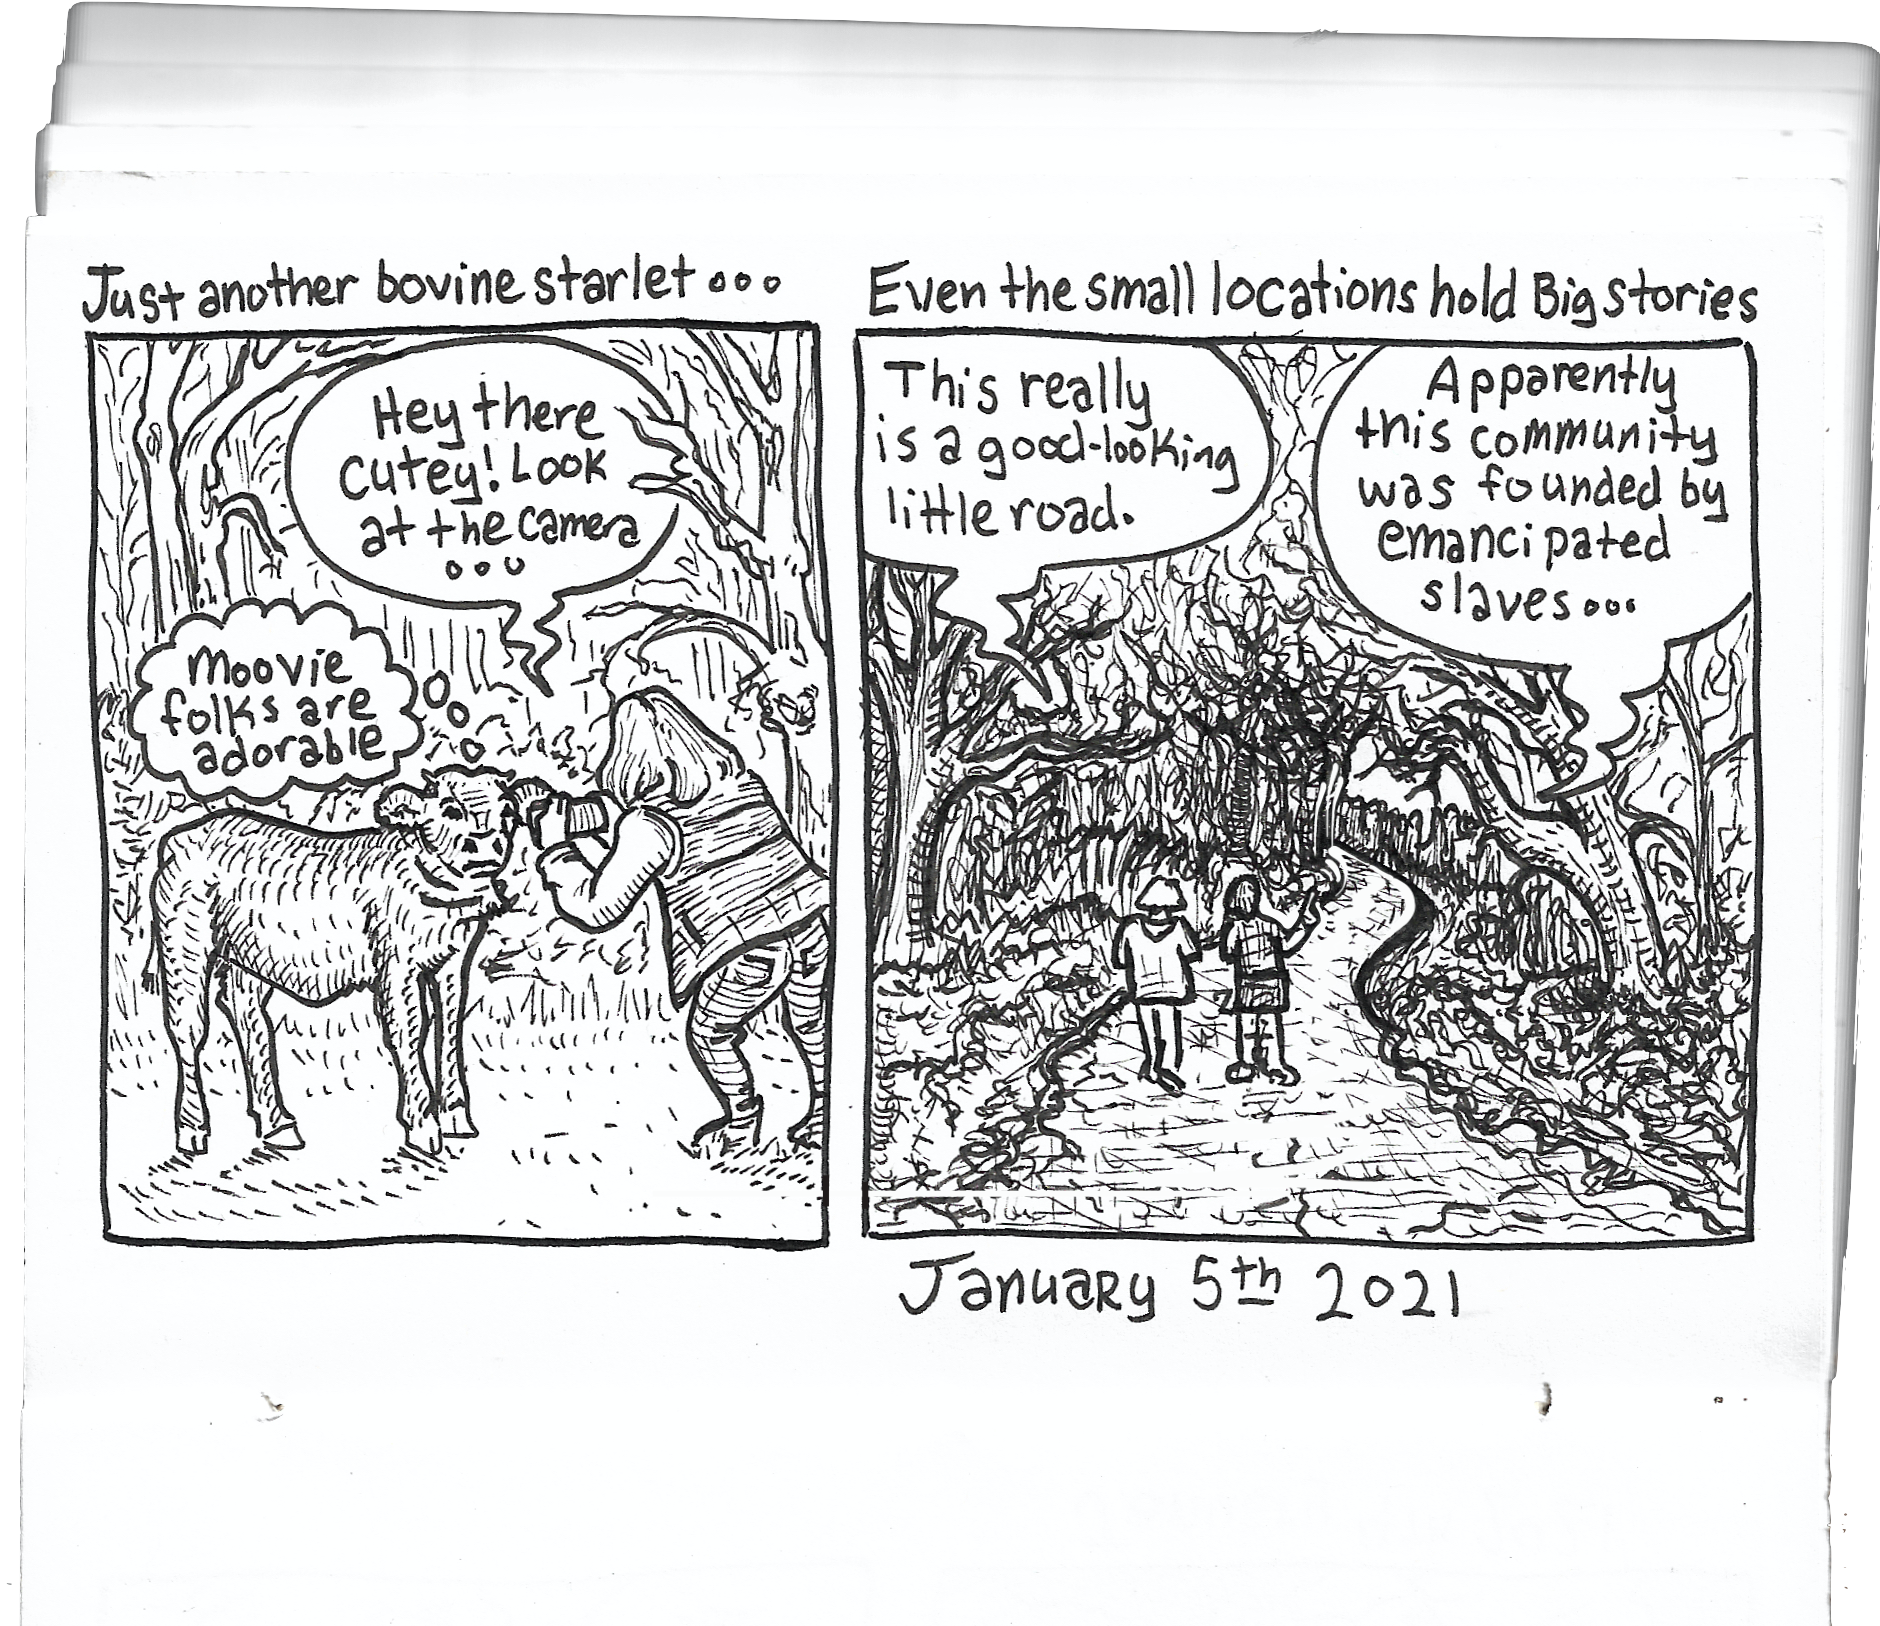 Just another bovine starlet...
Hey there
cutey! Look
at the camera
...
Moovie
folks are
adorable
Even the small locations hold Big stories
This really
is a good-looking
little road.
Apparently
this community
was founded by
emancipated
slaves...
January 5th 2021